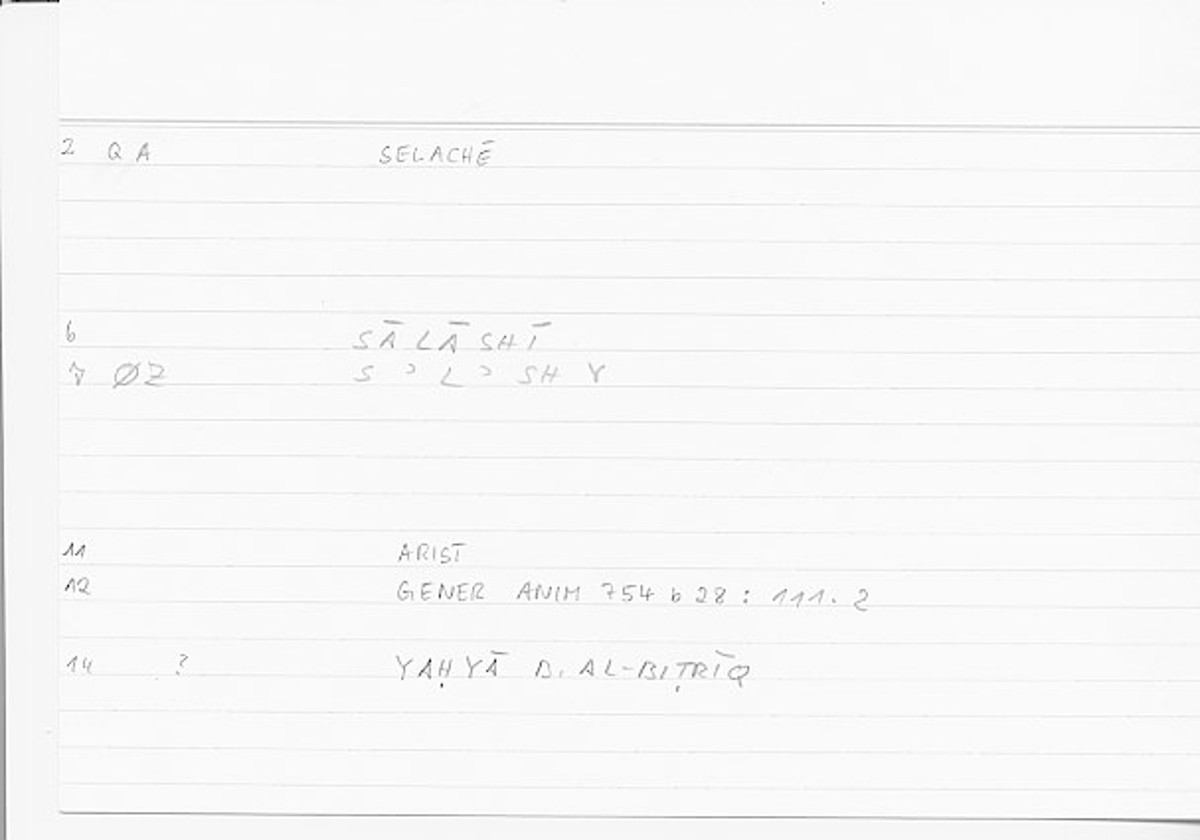 2 Q A SELACHĒ
6 SĀLĀSHĪ
7 ØZ S ɔ L ɔ SH Y
11 ARIST
12 GENER ANIM 754 b 28 : 111. 2
14 ? YAḤYĀ B. AL-BIṬRĪQ